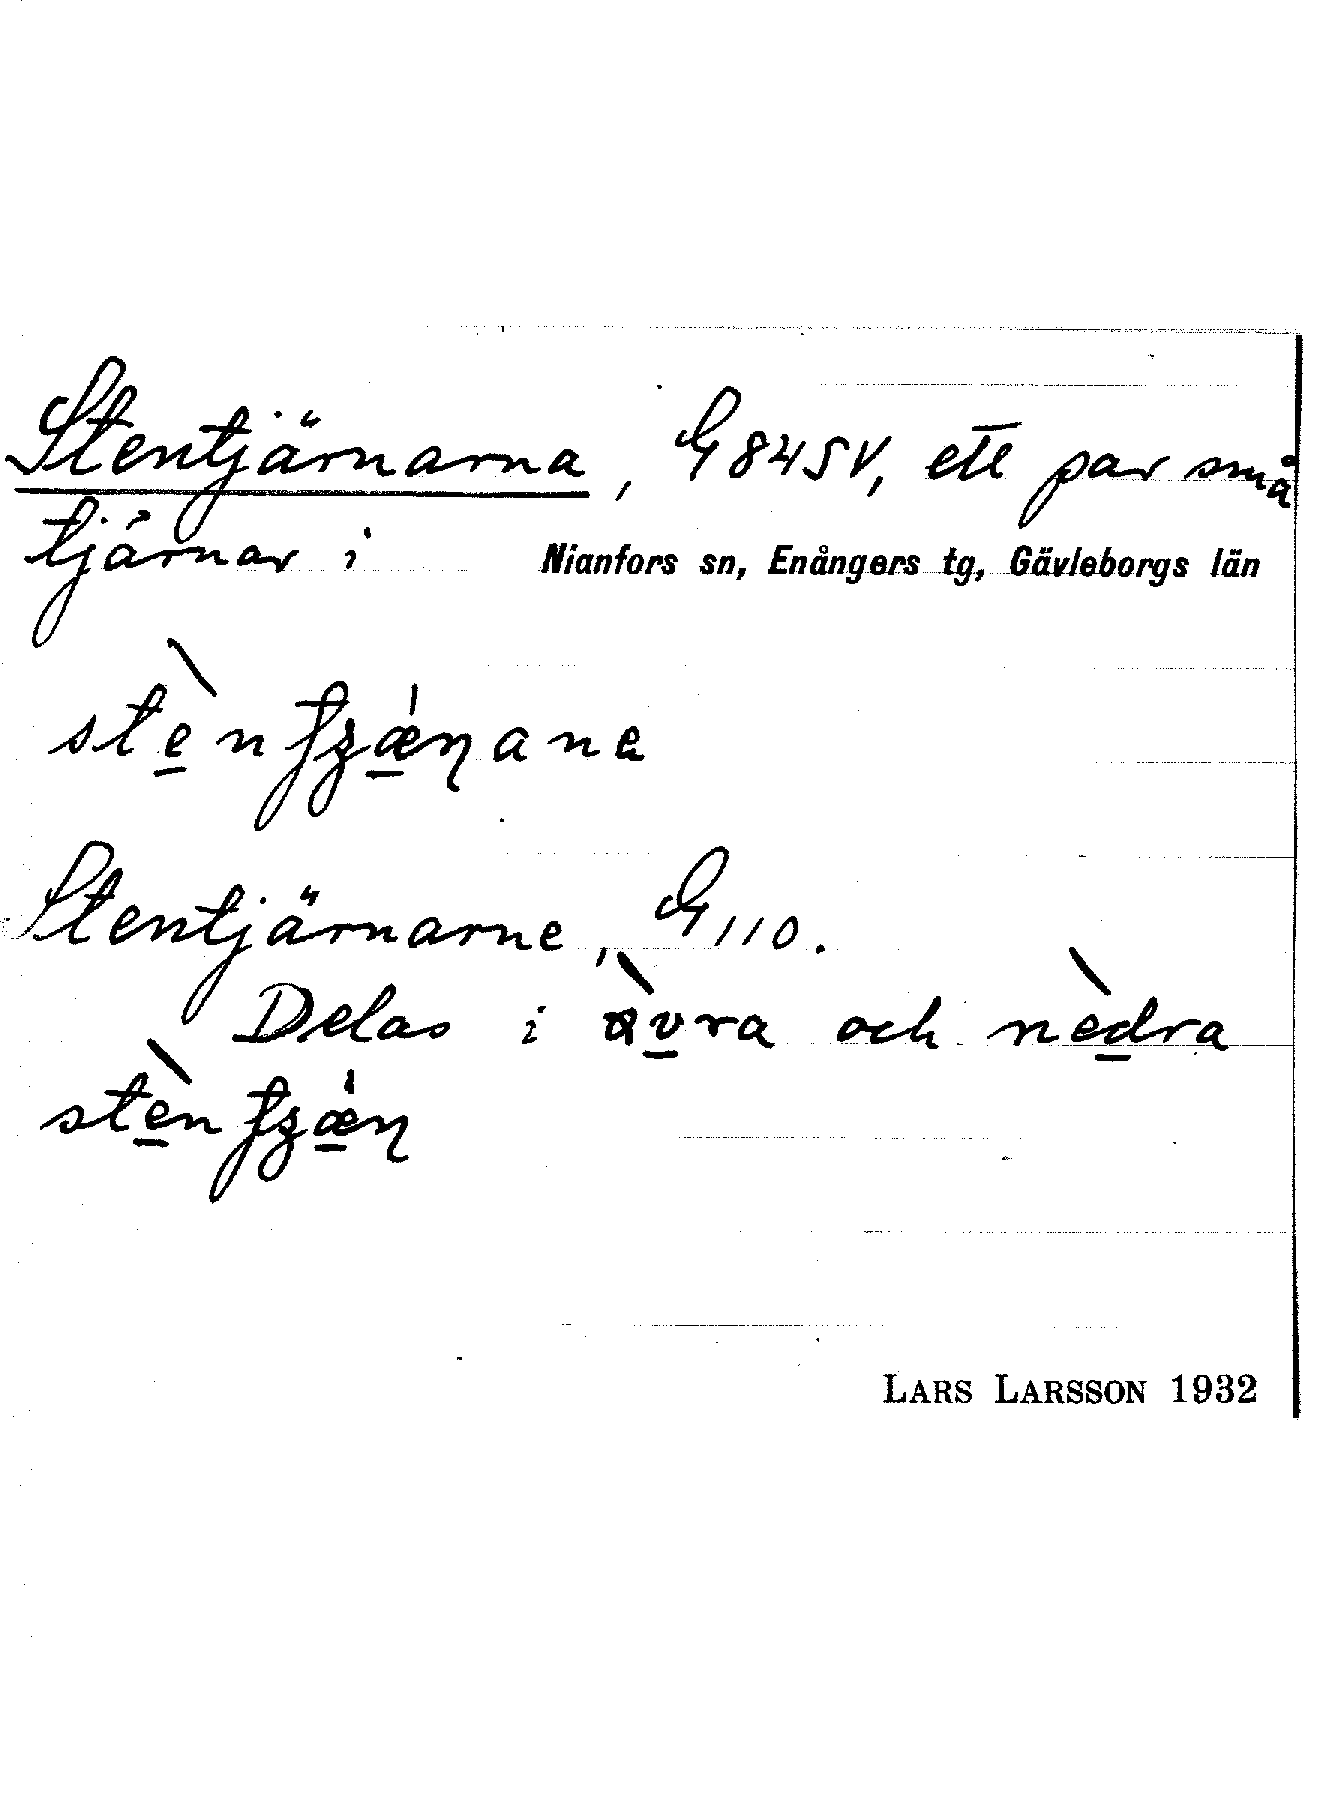 Stentjärnarna, G 84 SV, ett par små
tjärnar i Nianfors sn, Enångers tg, Gävleborgs län
stènʃʒæ̀ɳana
Stentjärnarne, G 110.
Delas i òvra och nèdra
stènʃʒæ̀ɳ
LARS LARSSON 1932